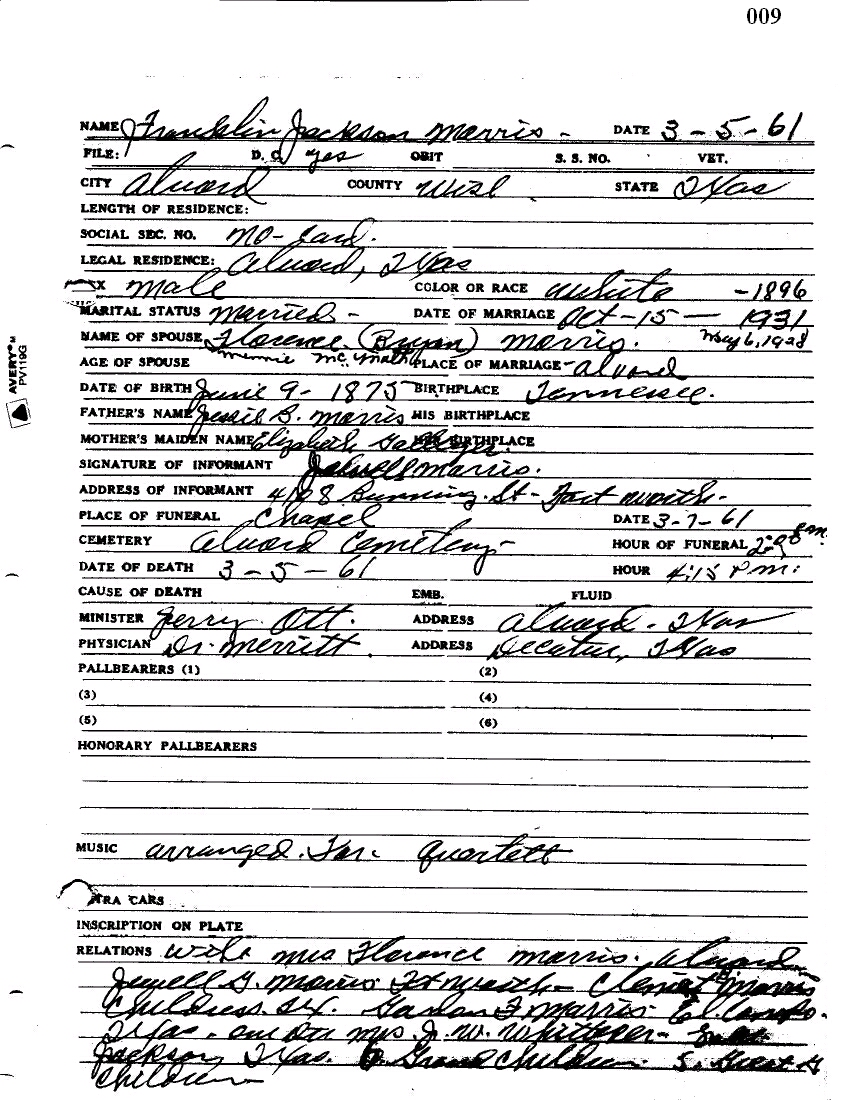 009
NAME Franklin Jackson Morris - DATE 3-5-61
FILE: D. C. yes OBIT S. S. NO. VET.
CITY Alvord COUNTY Wise STATE Texas
LENGTH OF RESIDENCE:
SOCIAL SEC. NO. no-card.
LEGAL RESIDENCE: Alvord, Texas
Male COLOR OR RACE White -1896
MARITAL STATUS Married - DATE OF MARRIAGE Oct-15-1931
NAME OF SPOUSE Florence (Bryan) Morris. May 6, 1928
AGE OF SPOUSE Minnie McMath PLACE OF MARRIAGE- Alvord
DATE OF BIRTH June 9- 1875 BIRTHPLACE Tennessee.
FATHER'S NAME Jessie B. Morris HIS BIRTHPLACE
MOTHER'S MAIDEN NAME Elizabeth HER BIRTHPLACE
SIGNATURE OF INFORMANT Jewell Morris.
ADDRESS OF INFORMANT 4108 St- Fort Worth-
PLACE OF FUNERAL Chapel DATE 3-7-61
CEMETERY Alvord Cemetery- HOUR OF FUNERAL P.M.
DATE OF DEATH 3-5-61 HOUR 4:15 P.M.
CAUSE OF DEATH EMB. FLUID
MINISTER Jerry Ott. ADDRESS Alvord- Texas
PHYSICIAN Dr. Merritt. ADDRESS Decatur, Texas
PALLBEARERS (1) (2)
(3) (4)
(5) (6)
HONORARY PALLBEARERS
MUSIC arranged. For. Quartett
TRA CARS
INSCRIPTION ON PLATE
RELATIONS Wife Mrs Florence Morris. Alvord
Jewell G. Morris Ft Worth- Morris
Childress. Garlan F Morris El Campo-
Texas. one Mrs. J. W.
Jackson, Texas. 6 Grand Children. 5. Great G
Children
AVERY™
PV119G